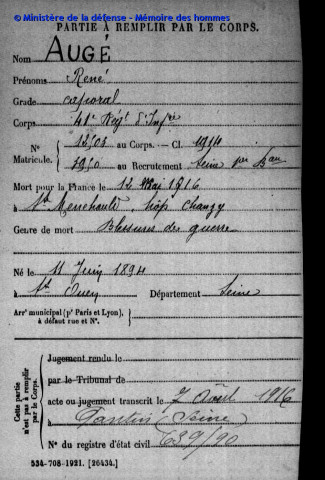 © Ministère de la défense - Mémoire des hommes
PARTIE À REMPLIR PAR LE CORPS.
Nom AUGÉ
Prénoms René
Grade caporal
Corps 41e Régt d'Infrie
N° 12/03 au Corps. — Cl. 1914
Matricule. 3910 au Recrutement Seine 1er Bau
Mort pour la France le 12 Mai 1916
à Ste Menehould, hôp. Chanzy
Genre de mort Blessures de guerre
Né le 11 Juin 1894
à St Ouen Département Seine
Arrt municipal (pr Paris et Lyon),
à défaut rue et N°.
Cette partie
n'est pas à remplir
par le Corps.
Jugement rendu le
par le Tribunal de
acte ou jugement transcrit le 7 Août 1916
à Pantin (Seine)
N° du registre d'état civil 639/90
534-708-1921. [26434.]